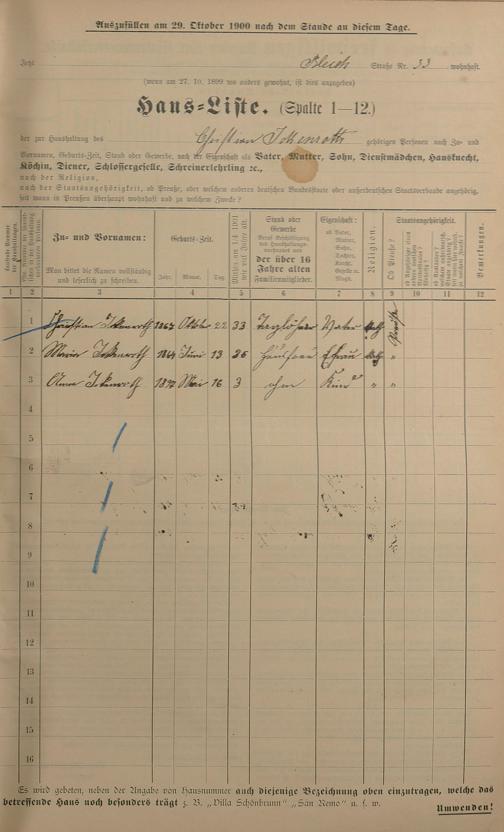 Auszufüllen am 29. Oktober 1900 nach dem Stande an diesem Tage.
Jetzt Bleich Straße Nr. 33 wohnhaft.
(wenn am 27. 10. 1899 wo anders gewohnt, ist dies anzugeben)
Haus=Liste. (Spalte 1—12.)
der zur Haushaltung des Christian Ickenroth gehörigen Personen nach Zu= und
Vornamen, Geburts=Zeit, Stand oder Gewerbe, nach der Eigenschaft als Vater, Mutter, Sohn, Dienstmädchen, Hausknecht,
Köchin, Diener, Schlossergeselle, Schreinerlehrling ꝛc.,
nach der Religion,
nach der Staatsangehörigkeit, ob Preuße, oder welchem anderen deutschen Bundesstaate oder außerdeutschen Staatsverbande angehörig,
seit wann in Preußen überhaupt wohnhaft und zu welchem Zwecke?
Zu= und Vornamen:
Man bittet die Namen vollständig
und leserlich zu schreiben.
Geburts=Zeit.
Jahr. Monat. Tag.
Stand oder
Gewerbe
der über 16
Jahre alten
Familienmitglieder.
Eigenschaft:
ob Vater,
Mutter,
Sohn,
Tochter,
Knecht,
Geselle o.
Magd.
Religion.
Staatsangehörigkeit.
Ob Preuße?
Bemerkungen.
1 2 3 4 5 6 7 8 9 10 11 12
1 Christian Ickenroth Oktober 22 33 Taglöhner Vater kath
2 Ickenroth Juni 13 Hausfrau Efrau kath "
3 Anna Ickenroth Mai 16 3 ohne Kind " "
4
5
6
7
8
9
10
11
12
13
14
15
16
Es wird gebeten, neben der Angabe von Hausnummer auch diejenige Bezeichnung oben einzutragen, welche das
betreffende Haus noch besonders trägt z. B. „Villa Schönbrunn" „San Remo" u. s. w.
Umwenden!